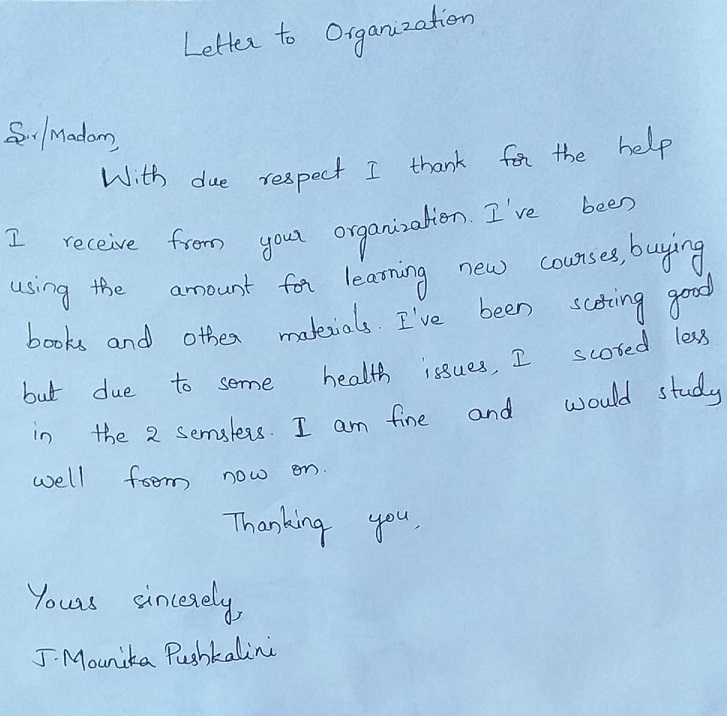 Letter to Organization
Sir/Madam,
With due respect I thank for the help
I receive from your organization. I've been
using the amount for learning new courses, buying
books and other materials. I've been scoring good
but due to some health issues, I scored less
in the 2 semsters. I am fine and would study
well from now on.
Thanking you,
Yours sincerely,
J. Mounika Pushkalini